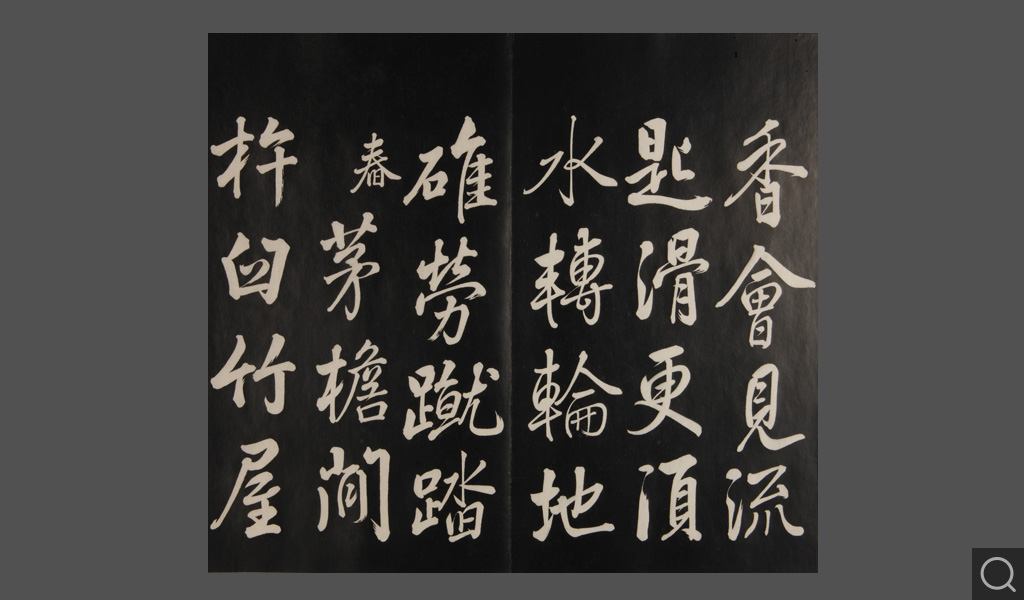 香會見流
匙滑更湏
水轉輪地
碓勞蹴踏
舂
茅檐間
杵臼竹屋